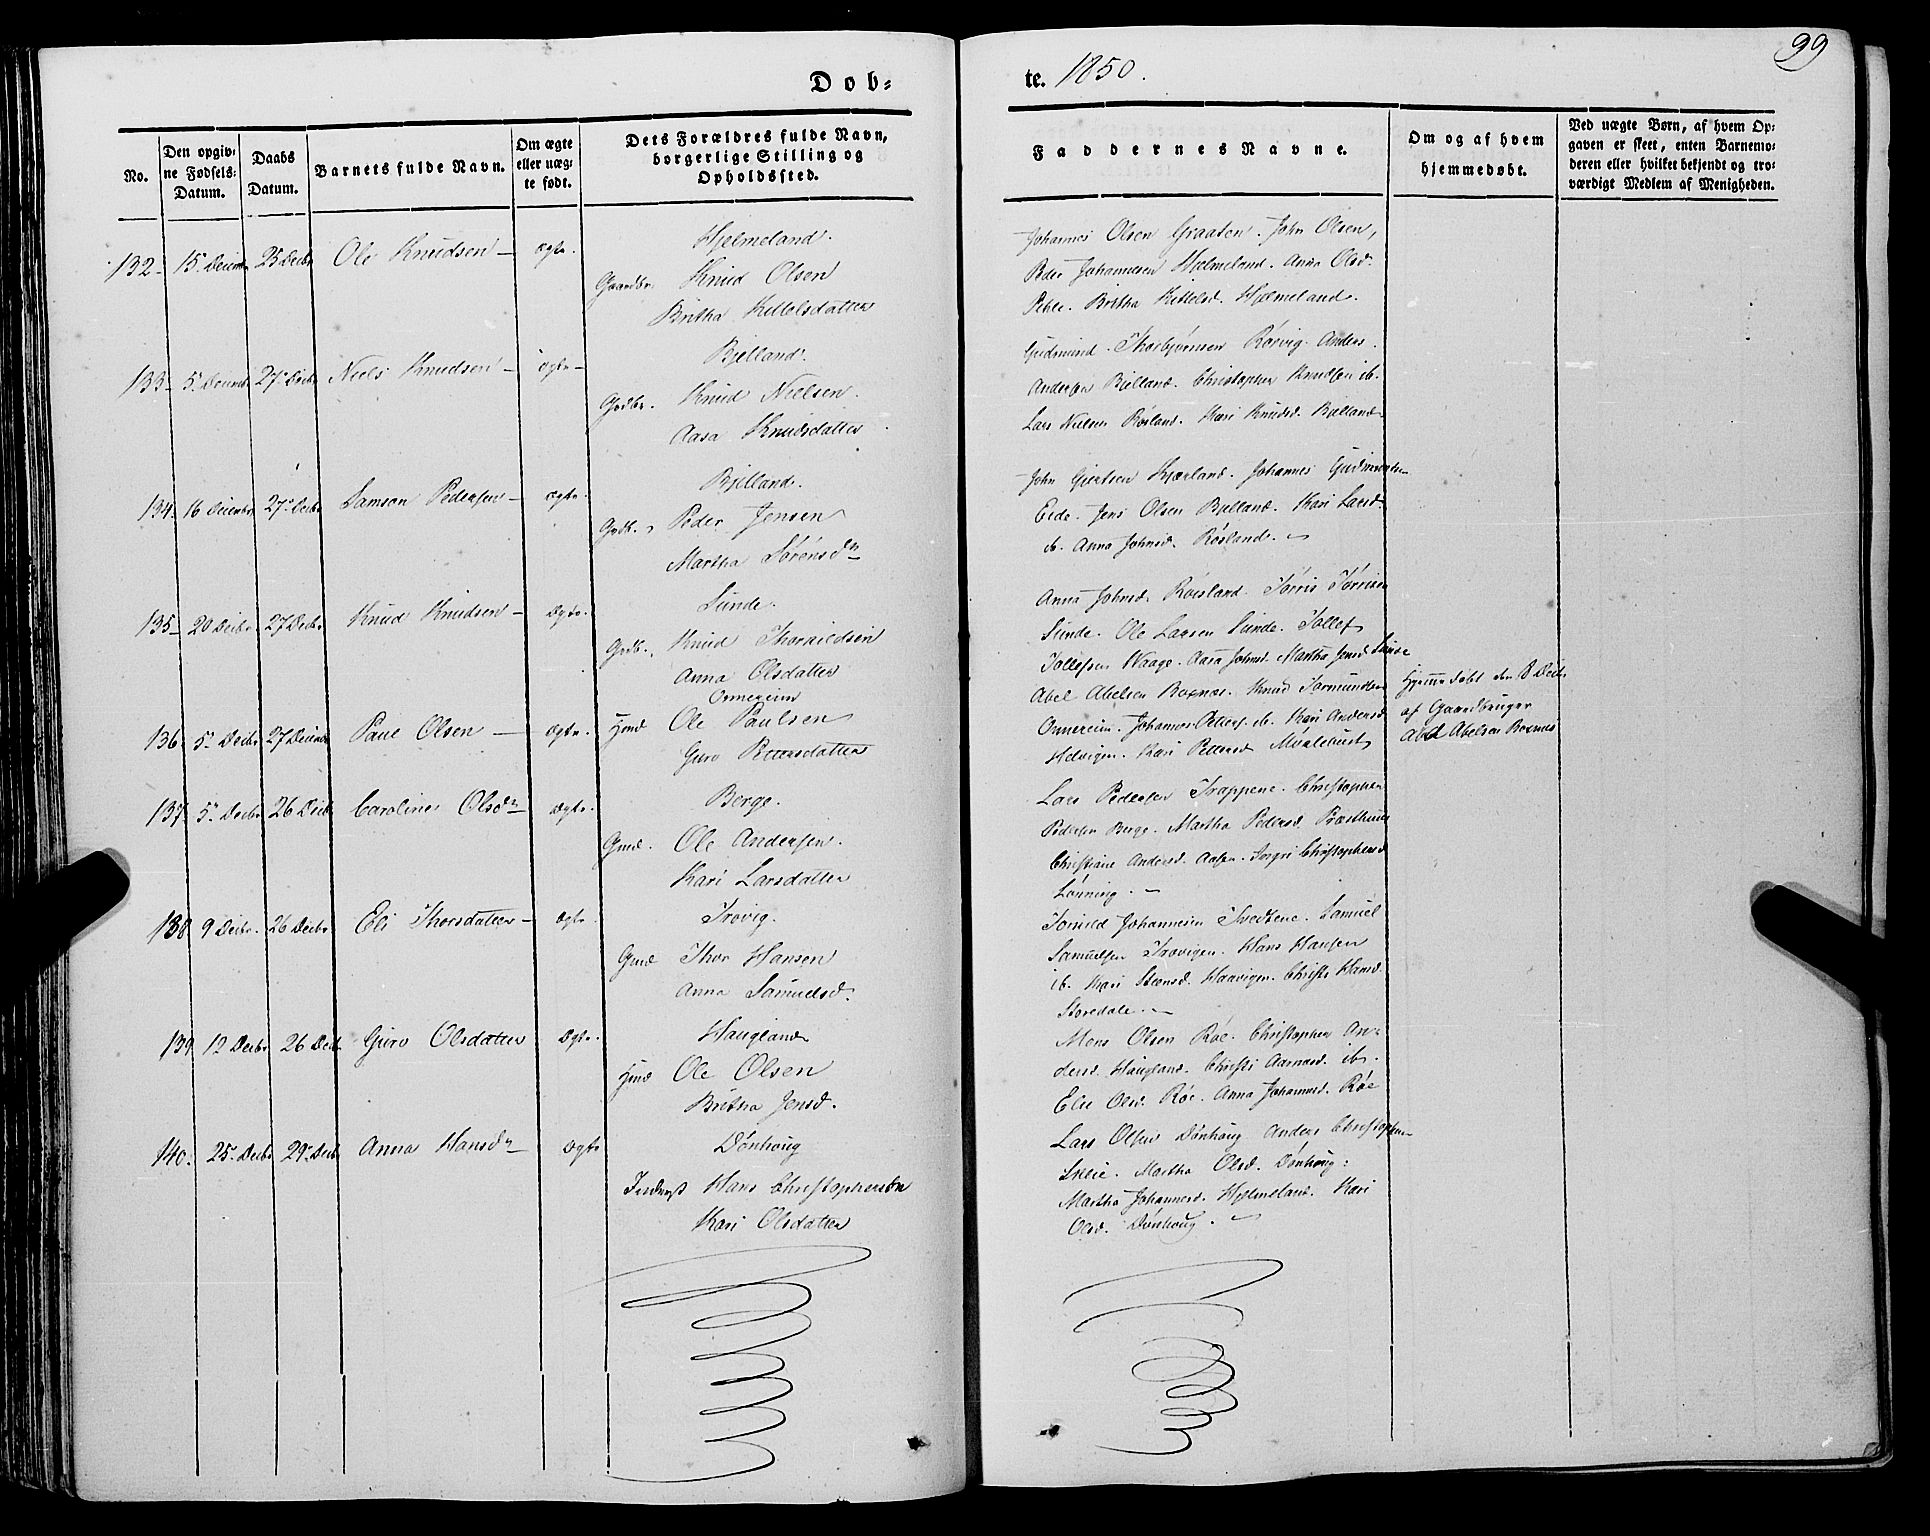 99
Døb-
te. 1850.
No.
Den opgiv-
ne Fødsels-
Datum.
Daabs
Datum.
Barnets fulde Navn.
Om ægte
eller uæg-
te født.
Dets Forældres fulde Navn,
borgerlige Stilling og
Opholdssted.
Faddernes Navne.
Om og af hvem
hjemmedøbt.
Ved uægte Børn, af hvem Op-
gaven er skeet, enten Barnemo-
deren eller hvilket bekjendt og tro-
værdigt Medlem af Menigheden.
132. 15. Decembr 25 Decbr Ole Knudsen – ægte.
Hjelmeland.
Gaardbr. Knud Olsen
Britha Kittelsdatter
Johannes Olsen Graaten. John Olsen,
Peder Johannesen Hjelmeland. Anna Olsd.
Britha Kittelsd. Hjelmeland.
133. 5. Decembr 27. Decbr Niels Knudsen – ægte –
Bjelland.
Grdbr. Knud Nielsen.
Aasa Knudsdatter
Gudmund Thorbjørnsen Rørvig. Anders
Andersen Bjelland. Christopher Knudsen ib.
Lars Nielsen Røsland. Kari Knudsd. Bjelland.
134. 16 Decembr 27. Decbr Samson Pedersen – ægte.
Bjelland.
Grdb. Peder Jensen
Martha Sørensdr
John Giertsen Kjærland. Johannes Gudmundsen
Eide. Jens Olsen Bjelland. Kari Larsd.
ib. Anna Johnsd. Røsland.
135. 20 Decbr 27 Decbr Knud Knudsen – ægte.
Sunde.
Grdb. Knud Thorkildsen
Anna Olsdatter
Anna Johnsd. Røesland. Tørris Tørrisen
Sunde. Ole Larsen Sunde. Tollef
Tollefsen Waage. Aasa Johnsd. Martha Jensd. Sunde
136. 5. Decbr 27 Decembr Paul Olsen – ægte.
Ommereim
Hmd Ole Paulsen
Guro Pettersdatter
Abel Abelsen Boxnæs. Knud Sormundsen
Ommereim. Johannes Petters. ib. Kari Andersd.
Helvigen. Kari Pettersd
Hjemmedøbt den 8 Decbr
af Gaardbruger
Abel Abelsen Boxnæs
137. 5. Decbr 26 Decbr Caroline Olsdr ægte.
Berge.
Gmd. Ole Andersen.
Kari Larsdatter
Lars Pedersen Trappene. Christopher
Pedersen Berge. Martha Pedersd. Præsthuus
Christiane Andersd. Aasen. Sorgri Christophersd.
Lønning.
138 9 Decbr. 26 Decbr Eli Thorsdatter – ægte.
Trøvig.
Gmd Thor Hansen
Anna Samuelsd.
Torkild Johannesen Tvedtene. Samuel
Samuelsen Trøvigen. Hans Hansen
ib. Kari Steensd. Haavigen. Christi Hansd.
Støredale.
139 12 Decbr 26 Decbr Guro Olsdatter ægte.
Haugland
Hmd Ole Olsen
Britha Jensd.
Mons Olsen Røe. Christopher An-
dersd. Haugland. Christi Aarnasd. ib.
Elie Olsd. Røe. Anna Johannesd. Røe
140. 25. Decbr 29. Decbr Anna Hansdr ægte
Dønhoug
Inderst Hans Christophersen
Kari Olsdatter
Lars Olsen Dønhoug Anders Christophersen
Martha Olsd. Dønhoug.
Martha Johannesd. Hjelmeland. Kari
Olsd. Dønhoug.